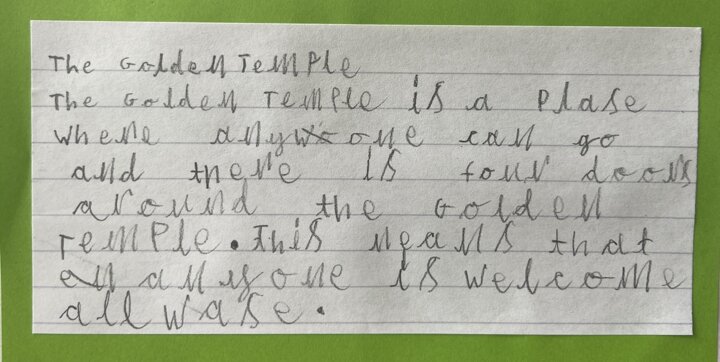 The Golden Temple
The Golden Temple is a plase
where anyone can go
and there is four doors
around the Golden
Temple. This means that
anyone is welcome
all wase.